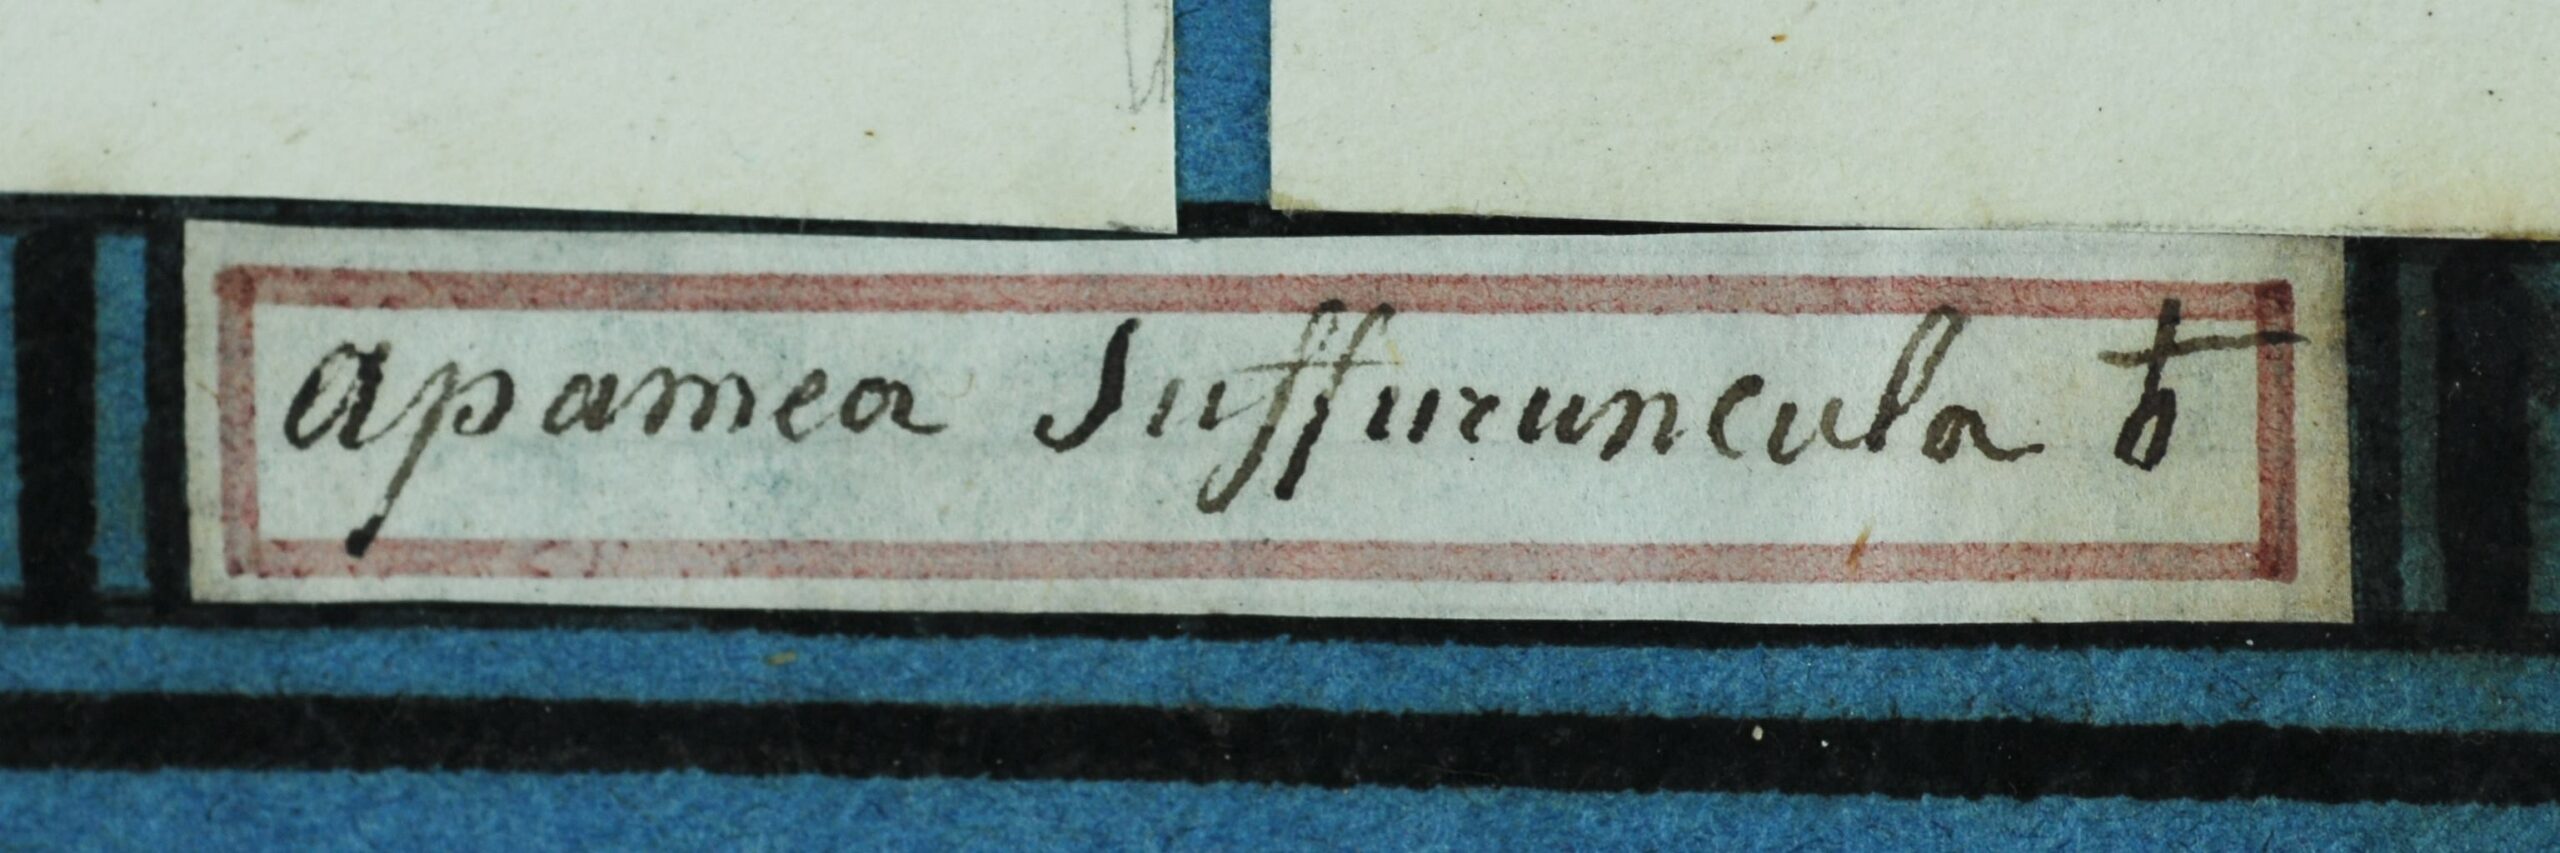 apamea Suffuruncula tr